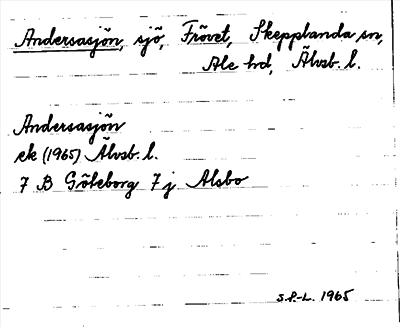 Andersasjön, sjö, Frövet, Skepplanda sn,
Ale hd, Älvsb. l.
Andersasjön
ek (1965) Älvsb. l.
7 B Göteborg 7 j Alsbo
S.P.-L. 1965